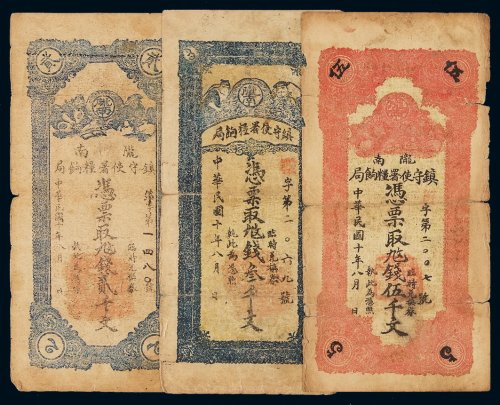 貳 貳
隴南
鎮守使署糧餉局
第一四八〇
憑票取錢貳千文
臨時兌換券
執此為照
中華民國十年八月 日
2 2
鎮守使署糧餉局
字第二〇六九號
憑票取錢叁千文
臨時兌換券
執此為照
中華民國十年八月 日
伍 伍
隴南
鎮守使署糧餉局
字第二〇〇七號
憑票取錢伍千文
臨時兌換券
執此為照
中華民國十年八月 日
5 5